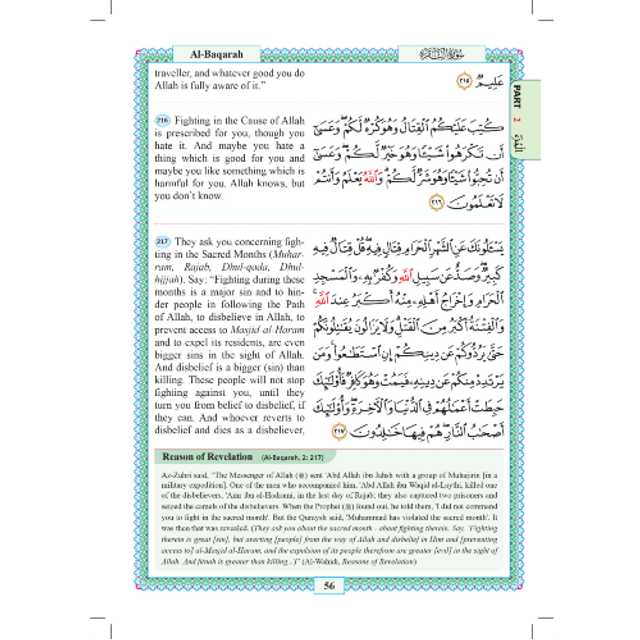 Al-Baqarah
سورة البقرة
PART 2 الجزء
traveller, and whatever good you do
Allah is fully aware of it.”
عَلِيمٌ ٢١٥
216 Fighting in the Cause of Allah
is prescribed for you, though you
hate it. And maybe you hate a
thing which is good for you and
maybe you like something which is
harmful for you. Allah knows, but
you don’t know.
كُتِبَ عَلَيْكُمُ الْقِتَالُ وَهُوَ كُرْهٌ لَّكُمْ وَعَسَىٰ
أَن تَكْرَهُوا شَيْئًا وَهُوَ خَيْرٌ لَّكُمْ وَعَسَىٰ
أَن تُحِبُّوا شَيْئًا وَهُوَ شَرٌّ لَّكُمْ وَاللَّهُ يَعْلَمُ وَأَنتُمْ
لَا تَعْلَمُونَ ٢١٦
217 They ask you concerning figh-
ting in the Sacred Months (Muhar-
ram, Rajab, Dhul-qada, Dhul-
hijjah). Say: “Fighting during these
months is a major sin and to hin-
der people in following the Path
of Allah, to disbelieve in Allah, to
prevent access to Masjid al-Haram
and to expel its residents, are even
bigger sins in the sight of Allah.
And disbelief is a bigger (sin) than
killing. These people will not stop
fighting against you, until they
turn you from belief to disbelief, if
they can. And whoever reverts to
disbelief and dies as a disbeliever,
يَسْـَٔلُونَكَ عَنِ الشَّهْرِ الْحَرَامِ قِتَالٍ فِيهِ قُلْ قِتَالٌ فِيهِ
كَبِيرٌ وَصَدٌّ عَن سَبِيلِ اللَّهِ وَكُفْرٌ بِهِ وَالْمَسْجِدِ
الْحَرَامِ وَإِخْرَاجُ أَهْلِهِ مِنْهُ أَكْبَرُ عِندَ اللَّهِ
وَالْفِتْنَةُ أَكْبَرُ مِنَ الْقَتْلِ وَلَا يَزَالُونَ يُقَاتِلُونَكُمْ
حَتَّىٰ يَرُدُّوكُمْ عَن دِينِكُمْ إِنِ اسْتَطَاعُوا وَمَن
يَرْتَدِدْ مِنكُمْ عَن دِينِهِ فَيَمُتْ وَهُوَ كَافِرٌ فَأُولَٰئِكَ
حَبِطَتْ أَعْمَالُهُمْ فِي الدُّنْيَا وَالْآخِرَةِ وَأُولَٰئِكَ
أَصْحَابُ النَّارِ هُمْ فِيهَا خَالِدُونَ ٢١٧
Reason of Revelation (Al-Baqarah, 2: 217)
Az-Zuhri said, “The Messenger of Allah (ﷺ) sent 'Abd Allah ibn Jahsh with a group of Muhajirin [in a
military expedition]. One of the men who accompanied him, 'Abd Allah ibn Waqid al-Laythi, killed one
of the disbelievers, 'Amr ibn al-Hadrami, in the last day of Rajab; they also captured two prisoners and
seized the camels of the disbelievers. When the Prophet (ﷺ) found out, he told them, 'I did not command
you to fight in the sacred month'. But the Quraysh said, 'Muhammad has violated the sacred month'. It
was then that was revealed, (They ask you about the sacred month - about fighting therein. Say, 'Fighting
therein is great [sin], but averting [people] from the way of Allah and disbelief in Him and [preventing
access to] al-Masjid al-Haram, and the expulsion of its people therefrom are greater [evil] in the sight of
Allah. And fitnah is greater than killing...)” (Al-Wahidi, Reasons of Revelation)
56